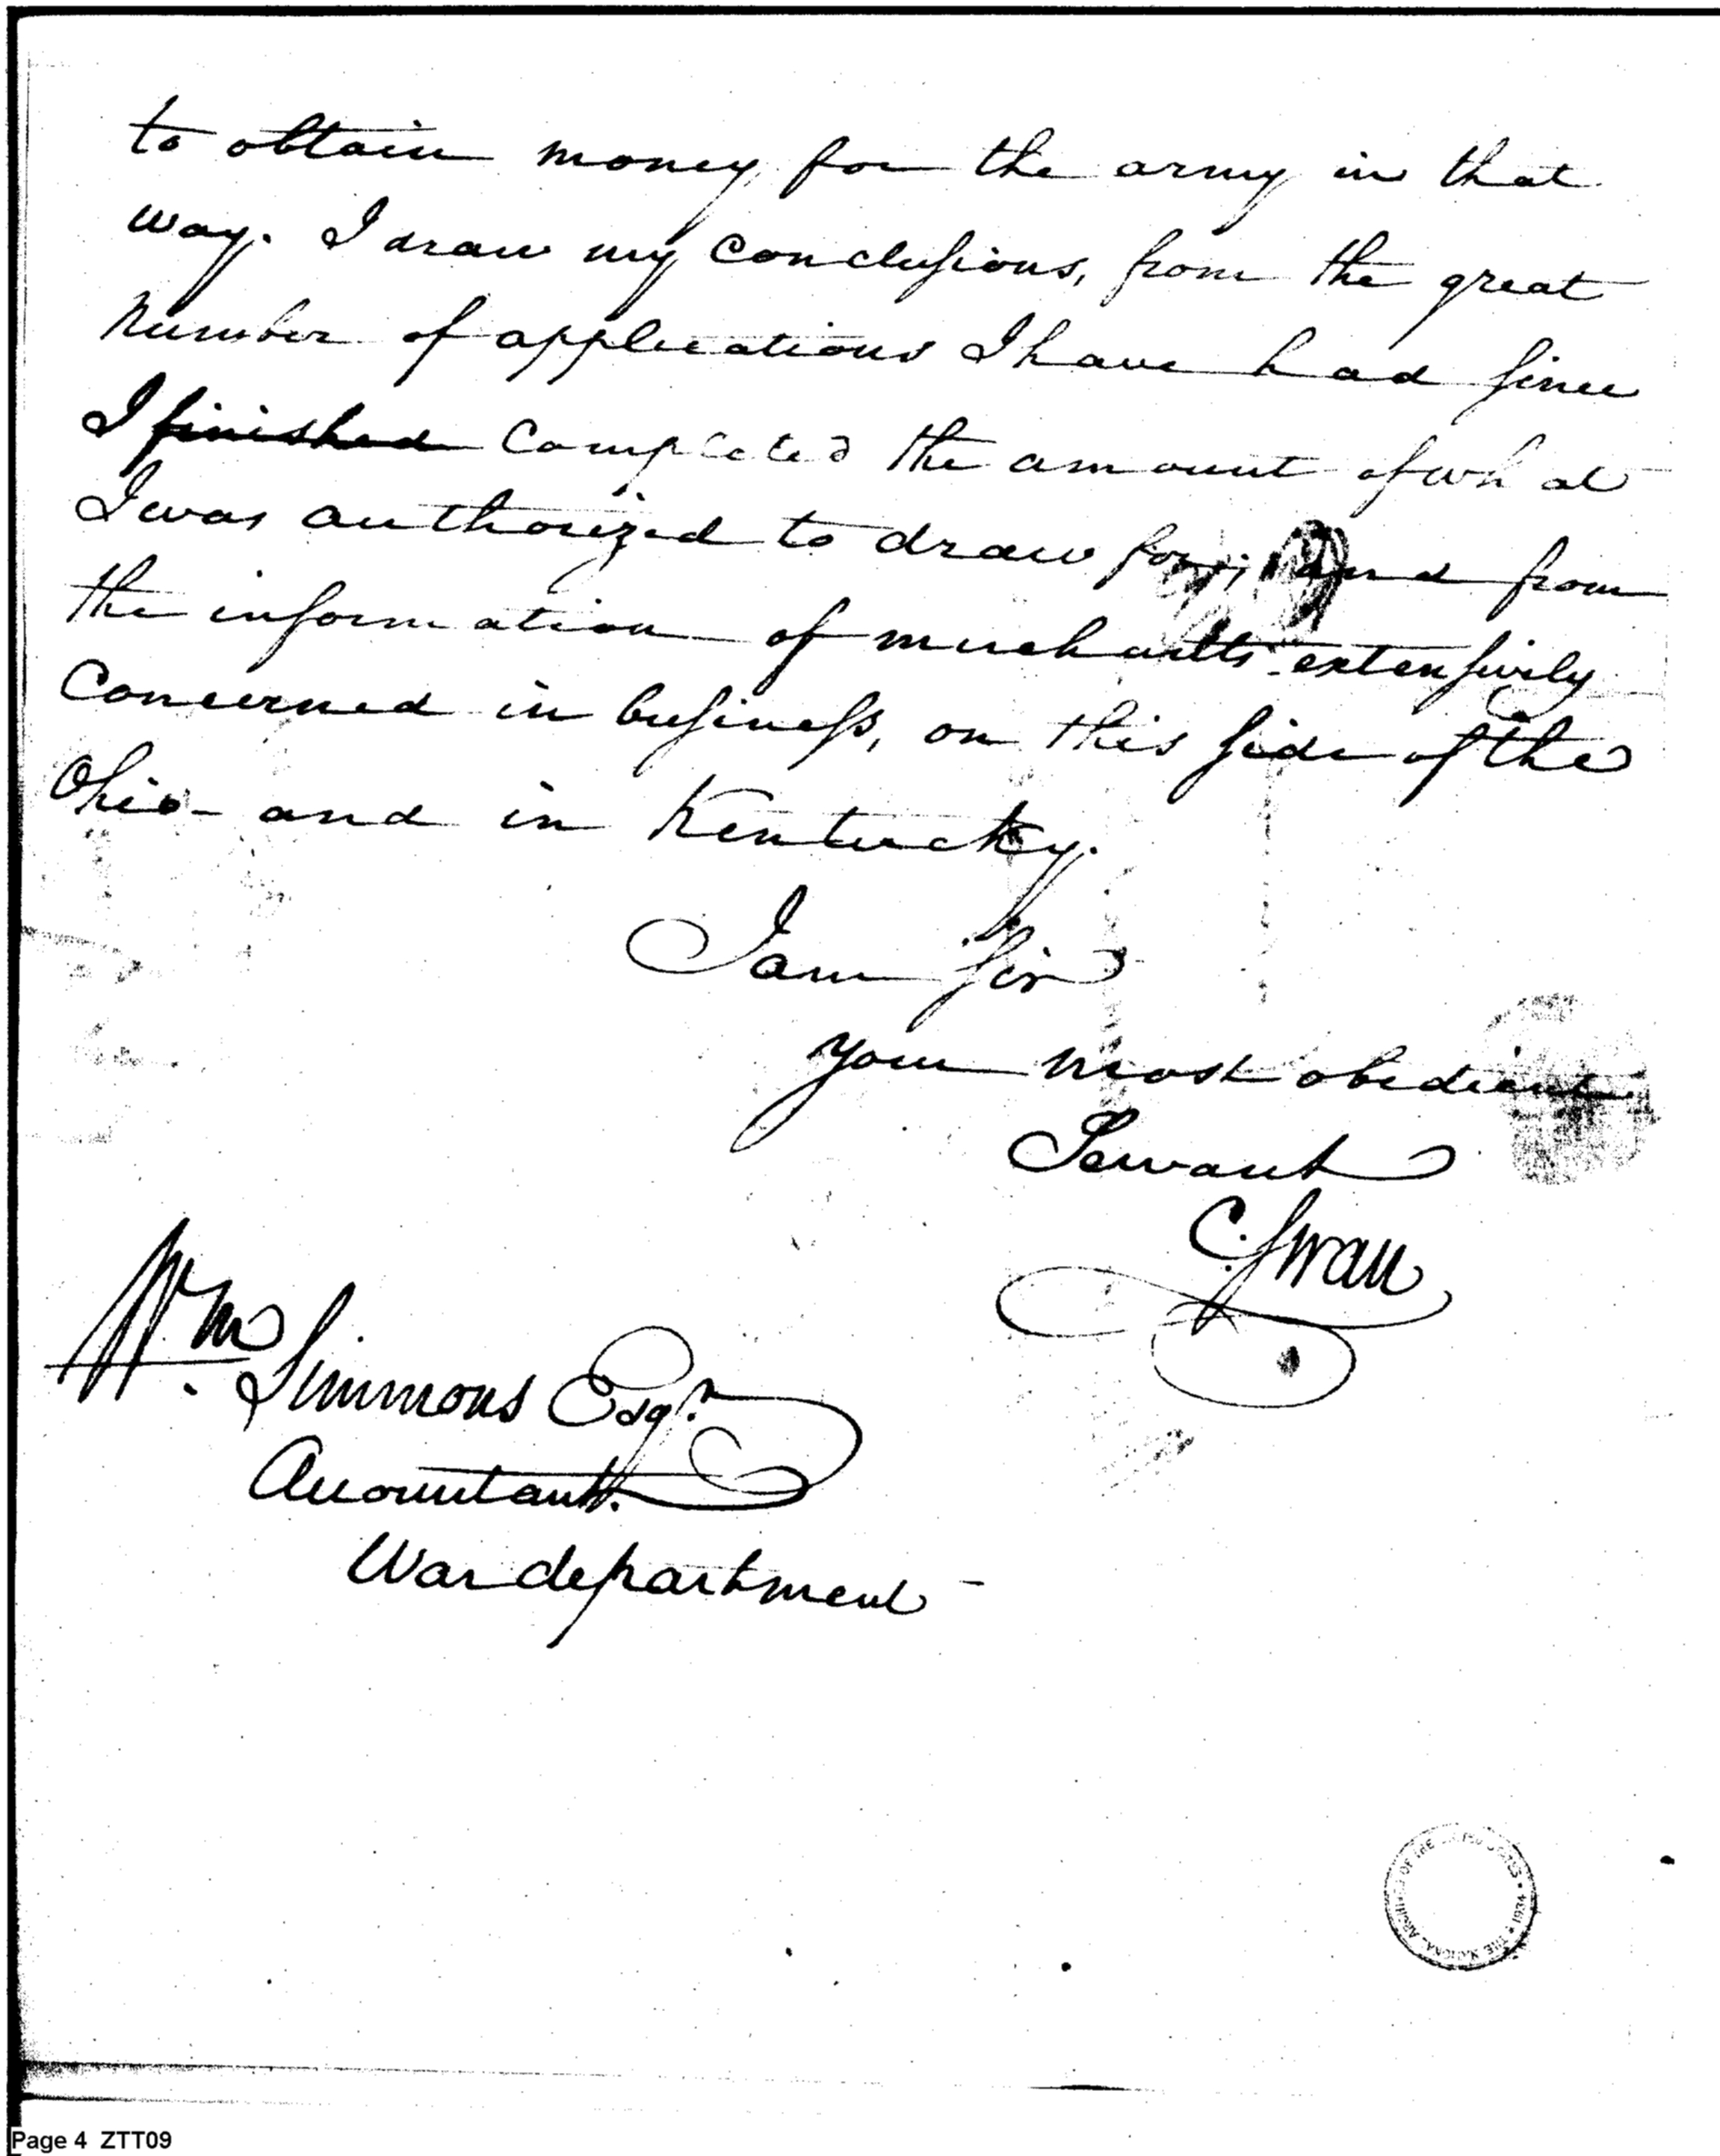 to obtain money for the army in that
way. I draw my conclusions, from the great
number of applications I have had since
I finished completed the amount of what
I was authorized to draw for; and from
the information of merchants extensively
concerned in business, on this side of the
Ohio and in Kentucky.
I am sir
your most obedient
Servant
C. Swan
Wm. Simmons Esqr.
Accountant.
War department -
THE NATIONAL ARCHIVES OF THE UNITED STATES • 1934 •
Page 4 ZTT09